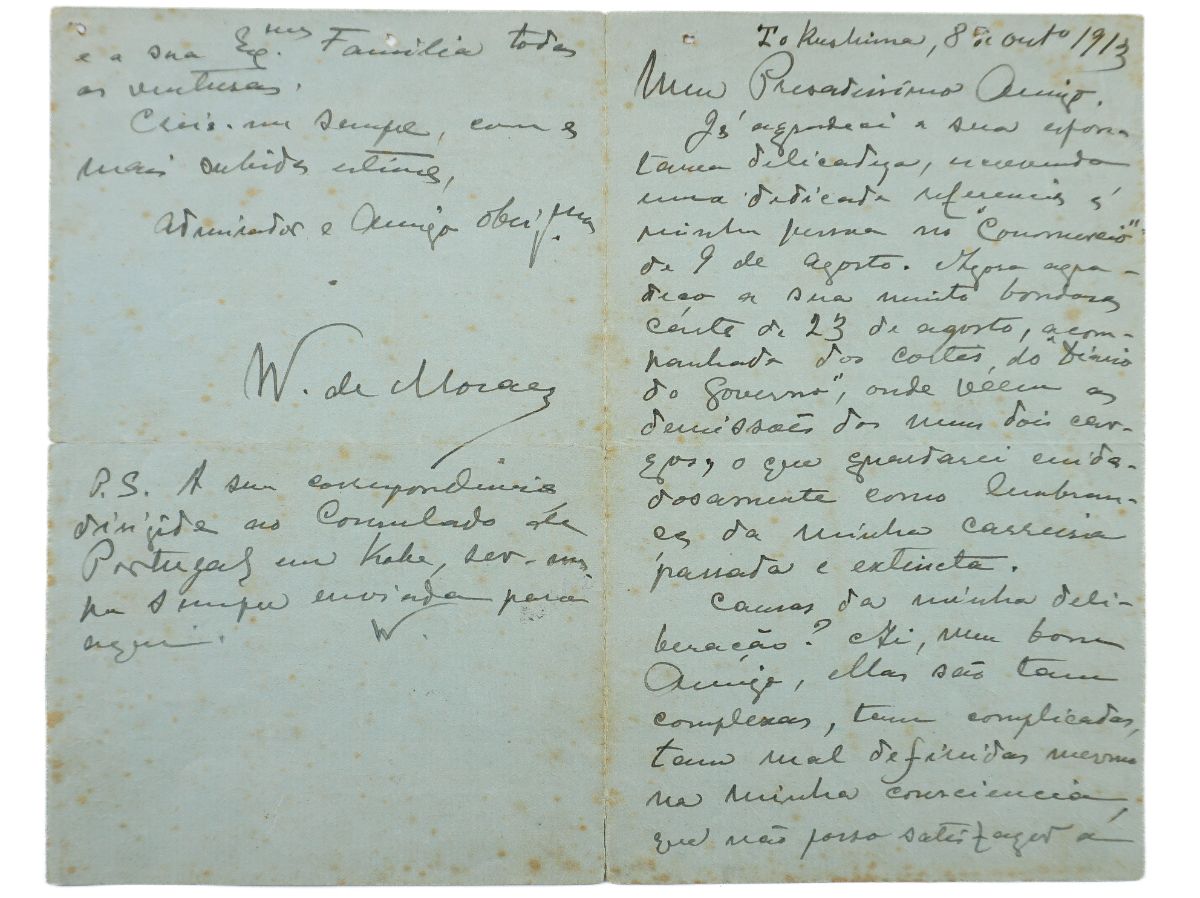 Tokushima, 8 de outº 1913
Meu Presadissimo Amigo.
Já agradeci a sua espon-
tanea delicadeza, escrevendo
uma dedicada referencia á
minha pessoa no "Commercio"
de 9 de agosto. Agora agra-
deço a sua muito bondosa
carta de 23 de agosto, acom-
panhada dos cortes do "Diario
do Governo", onde vêem as
demissões dos meus dois car-
gos, o que guardarei cuida-
dosamente como lembran-
ça da minha carreira
passada e extincta.
Causas da minha deli-
beração? Ai, meu bom
Amigo, ellas são tam
complexas, tam complicadas,
tam mal definidas mesmo
na minha consciencia,
que não posso satisfazer á
e a sua Exma. Familia todas
as venturas.
Creia-me sempre, com a
mais subida estima,
Admirador e Amigo obrigmo
W. de Moraes
P.S. A sua correspondencia,
dirigida ao Consulado de
Portugal em Kobe, ser-me-
ha sempre enviada para
aqui.
W.